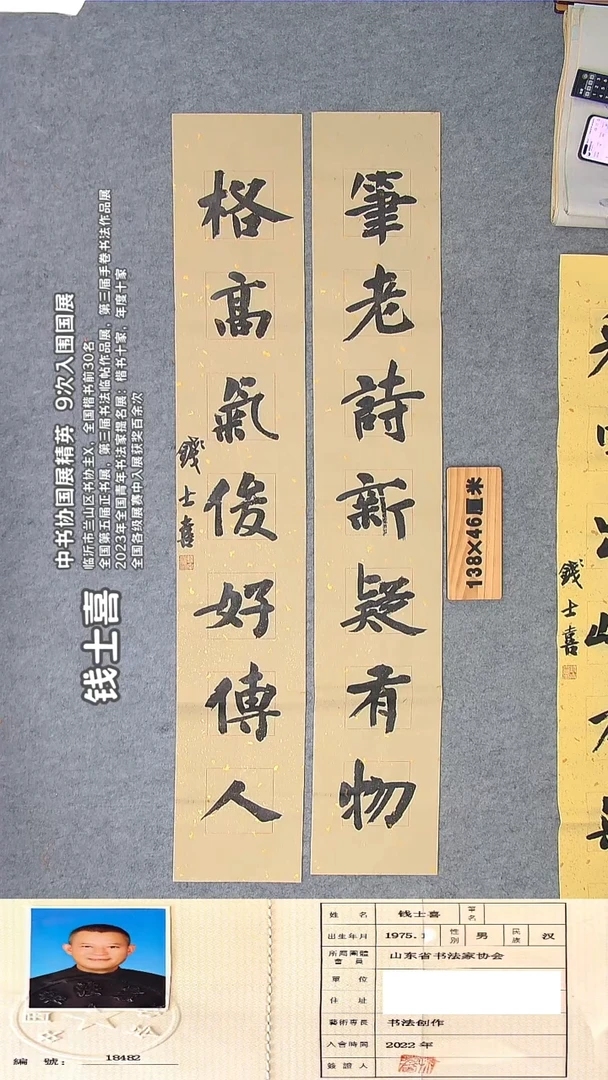 筆老詩新疑有物
格高氣俊好傳人
錢士喜
138×46厘米
錢士喜
钱士喜
中书协国展精英 9次入围国展
临沂市兰山区书协主X，全国楷书前30名
全国第五届正书展，第三届书法临帖作品展，第三届手卷书法作品展
2023年全国青年书法家提名展：楷书十家，年度十家
全国各级展赛中入展获奖百余次
姓 名 钱士喜 筆名
出生年月 1975. 性别 男 民族 汉
所屬團體會員 山东省书法家协会
單 位
住 址
藝術專長 书法创作
入會時間 2022 年
簽證人
編 號： 18482